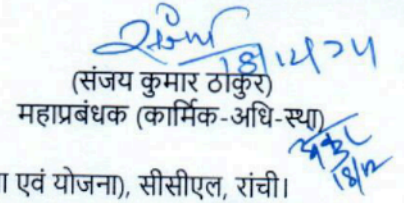 18/12/24
(संजय कुमार ठाकुर)
महाप्रबंधक (कार्मिक-अधि-स्था)
18/12
एवं योजना), सीसीएल, रांची।